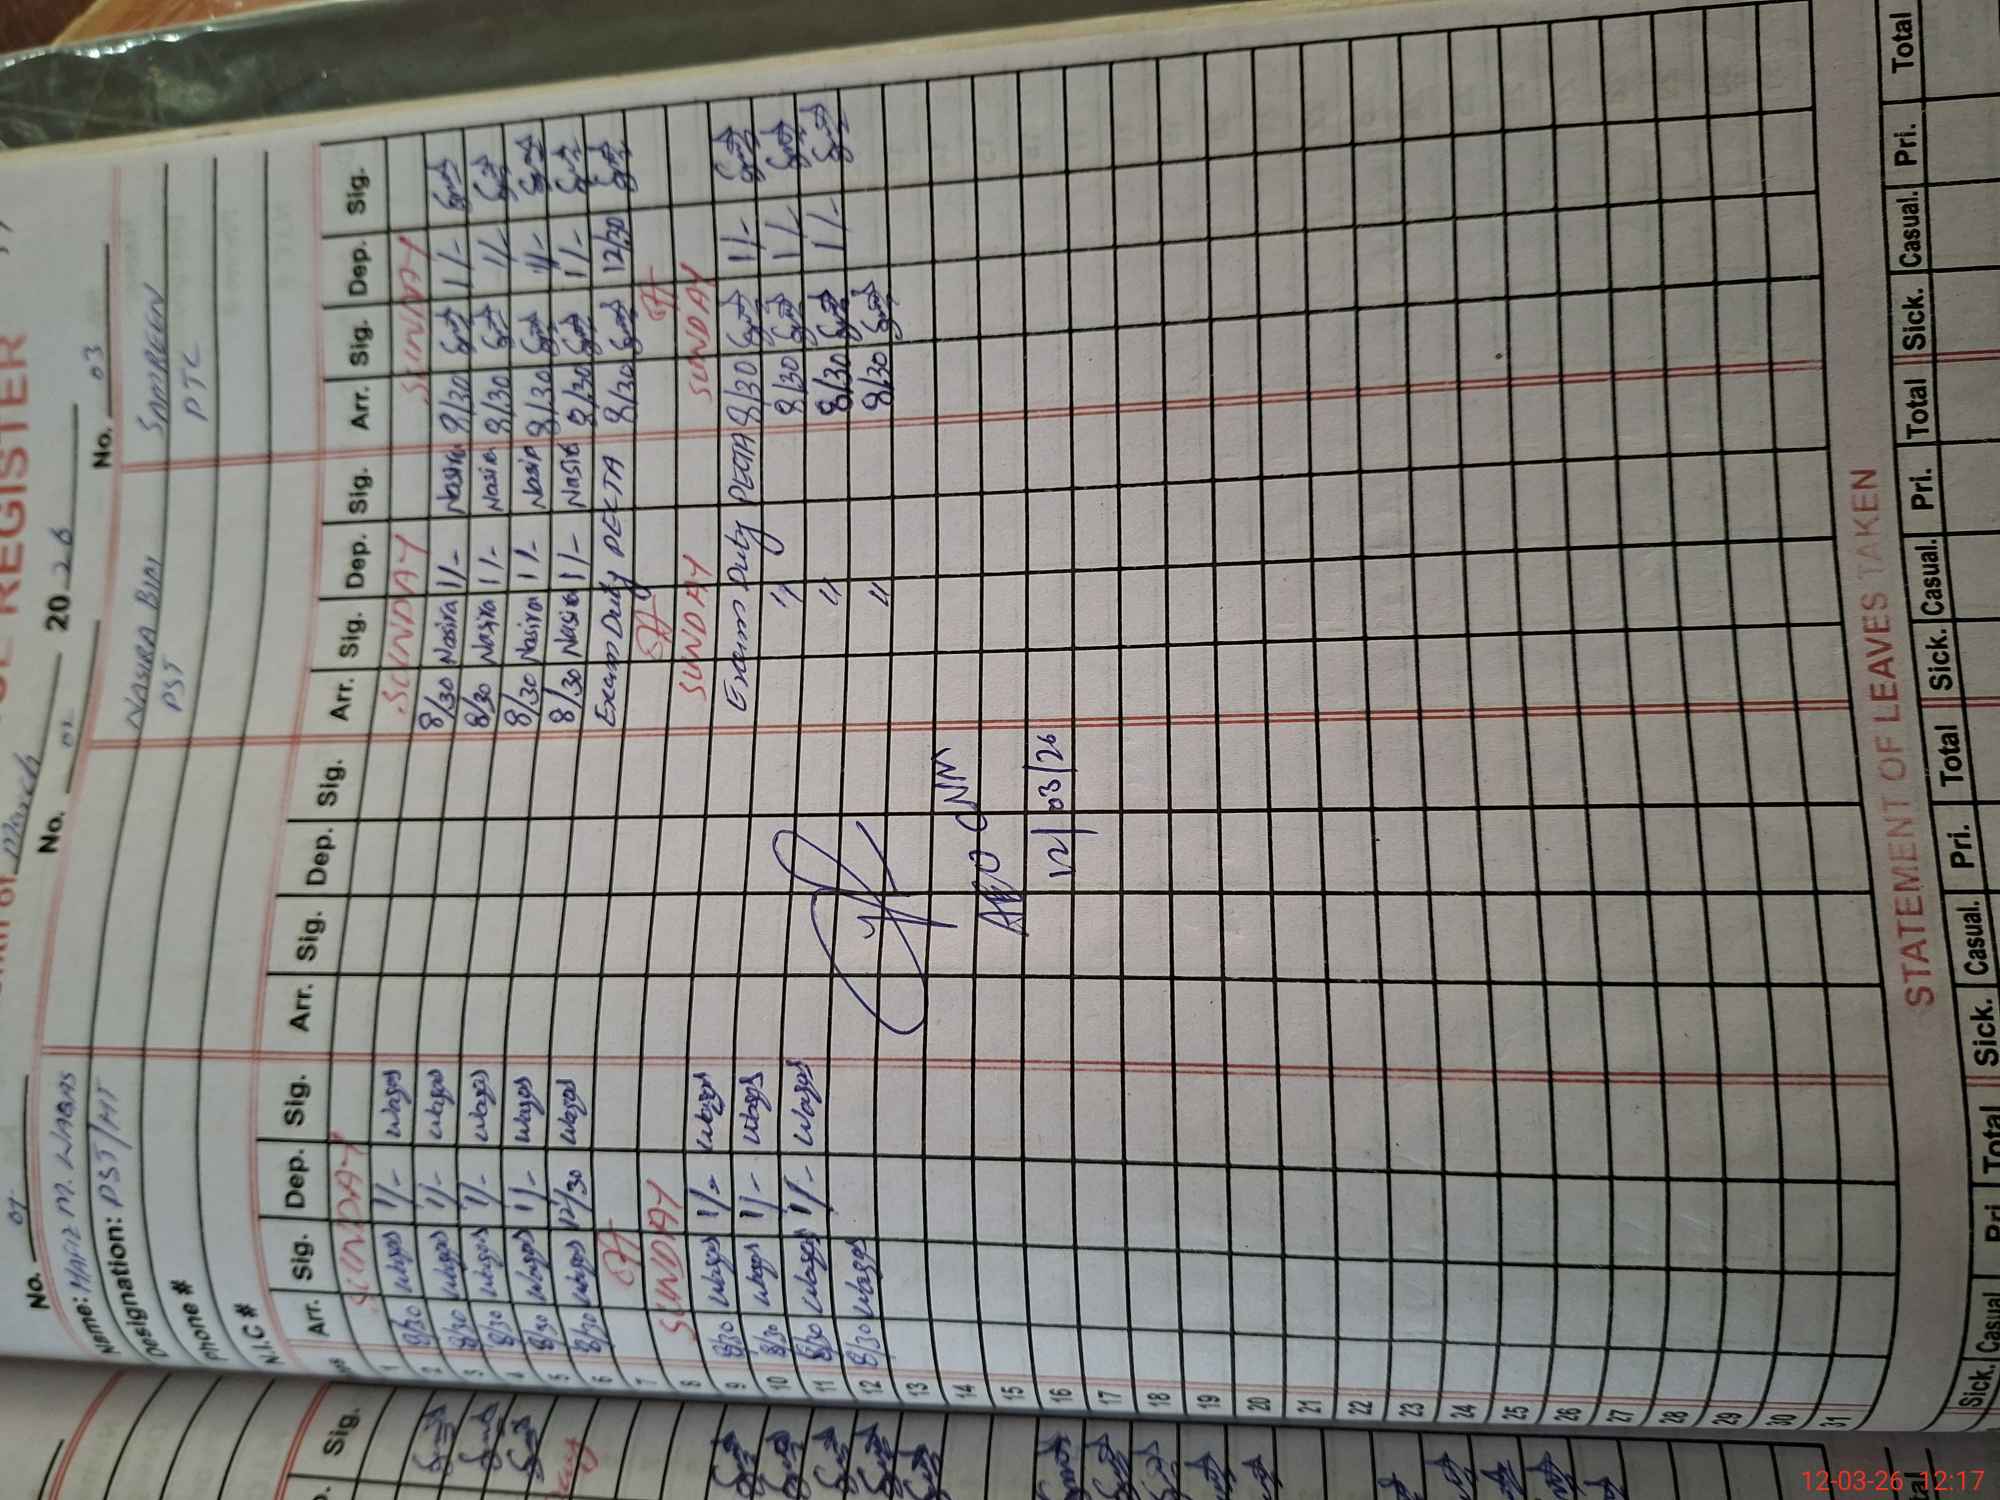 REGISTER
March 20 26
No. 01 No. 02 No. 03
Name: HAFIZ M. WAQAS NASIRA BIBI SAMREEN
Designation: PST/HT PST PTC
Phone #
N.I.C #
Arr. Sig. Dep. Sig. Arr. Sig. Dep. Sig. Arr. Sig. Dep. Sig. Arr. Sig. Dep. Sig.
1 SUNDAY SUNDAY SUNDAY
2 8/30 Waqas 1/- Waqas 8/30 Nasira 1/- Nasira 8/30 1/-
3 8/30 Waqas 1/- Waqas 8/30 Nasira 1/- Nasira 8/30 1/-
4 8/30 Waqas 1/- Waqas 8/30 Nasira 1/- Nasira 8/30 1/-
5 8/30 Waqas 1/- Waqas 8/30 Nasira 1/- Nasira 8/30 1/-
6 8/30 Waqas 12/30 Waqas Exam Duty PECTA 8/30 12/30
7
8 SUNDAY SUNDAY SUNDAY
9 8/30 Waqas 1/- Waqas Exam Duty PECTA 8/30 1/-
10 8/30 Waqas 1/- Waqas " 8/30 1/-
11 8/30 Waqas 1/- Waqas " 8/30 1/-
12 8/30 Waqas " 8/30
13
14
15
16 12/03/26
17
18
19
20
21
22
23
24
25
26
27
28
29
30
31
STATEMENT OF LEAVES TAKEN
Sick. Casual Pri. Total Sick. Casual. Pri. Total Sick. Casual. Pri. Total Sick. Casual. Pri. Total
12-03-26 12:17